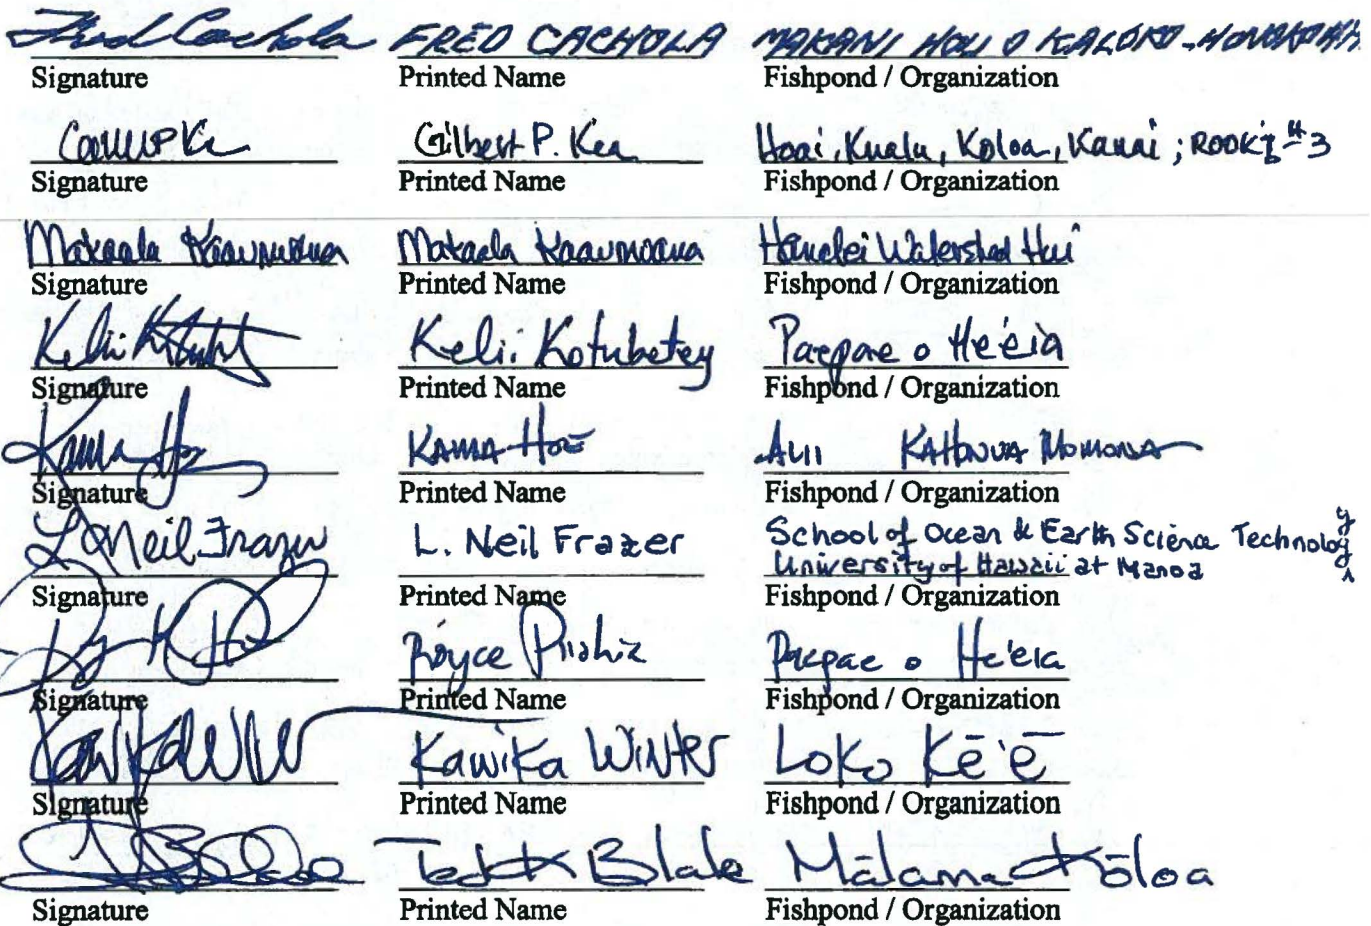 Fred Cachola FRED CACHOLA MAKANI HOU O KALOKO-HONOKOHAU
Signature Printed Name Fishpond / Organization
Gilbert P. Kea Hoai, Kualu, Koloa, Kauai; ROOKZ #3
Signature Printed Name Fishpond / Organization
Makaala Kaaumoana Makaala Kaaumoana Hanalei Watershed Hui
Signature Printed Name Fishpond / Organization
Keli'i Kotubetey Paepae o He'eia
Signature Printed Name Fishpond / Organization
Kama Hoe KAMA HOE ALII KAHONUA MOMONA
Signature Printed Name Fishpond / Organization
L Neil Frazer L. Neil Frazer School of Ocean & Earth Science Technology
University of Hawaii at Manoa
Signature Printed Name Fishpond / Organization
Royce Paepae o He'eia
Signature Printed Name Fishpond / Organization
Kawika Winter Loko Kē'ē
Signature Printed Name Fishpond / Organization
Ted K Blake Mālama Kōloa
Signature Printed Name Fishpond / Organization